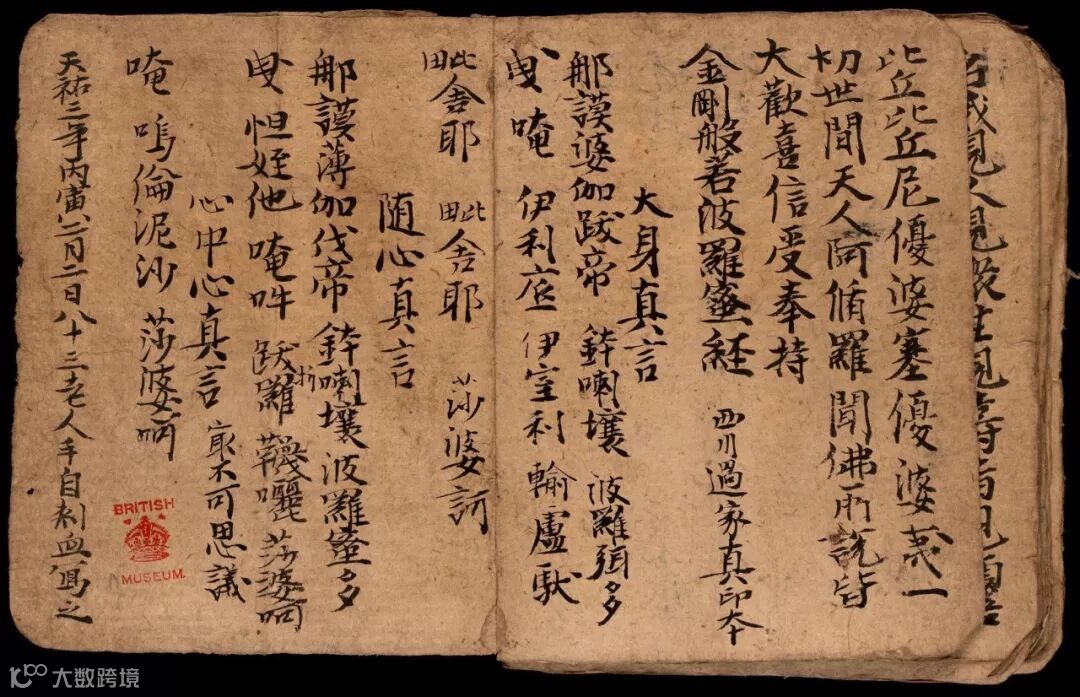 比丘比丘尼優婆塞優婆夷一
切世間天人阿脩羅聞佛所說皆
大歡喜信受奉持
金剛般若波羅蜜經 西川過家真印本
大身真言
那謨婆伽跋帝 鉢喇壤 波羅弭多
曳 唵 伊利底 伊室利 輸盧馱
毗舍耶 毗舍耶 莎婆訶
随心真言
那謨薄伽伐帝 鉢喇壤波羅蜜多
曳 怛姪他 唵吽 跋折羅 莎婆呵
心中心真言 宬不可思議
唵 嗚倫泥沙 莎婆呵
天祐三年丙寅二月二日八十三老人手自刺血寫之
BRITISH
MUSEUM
大数跨境